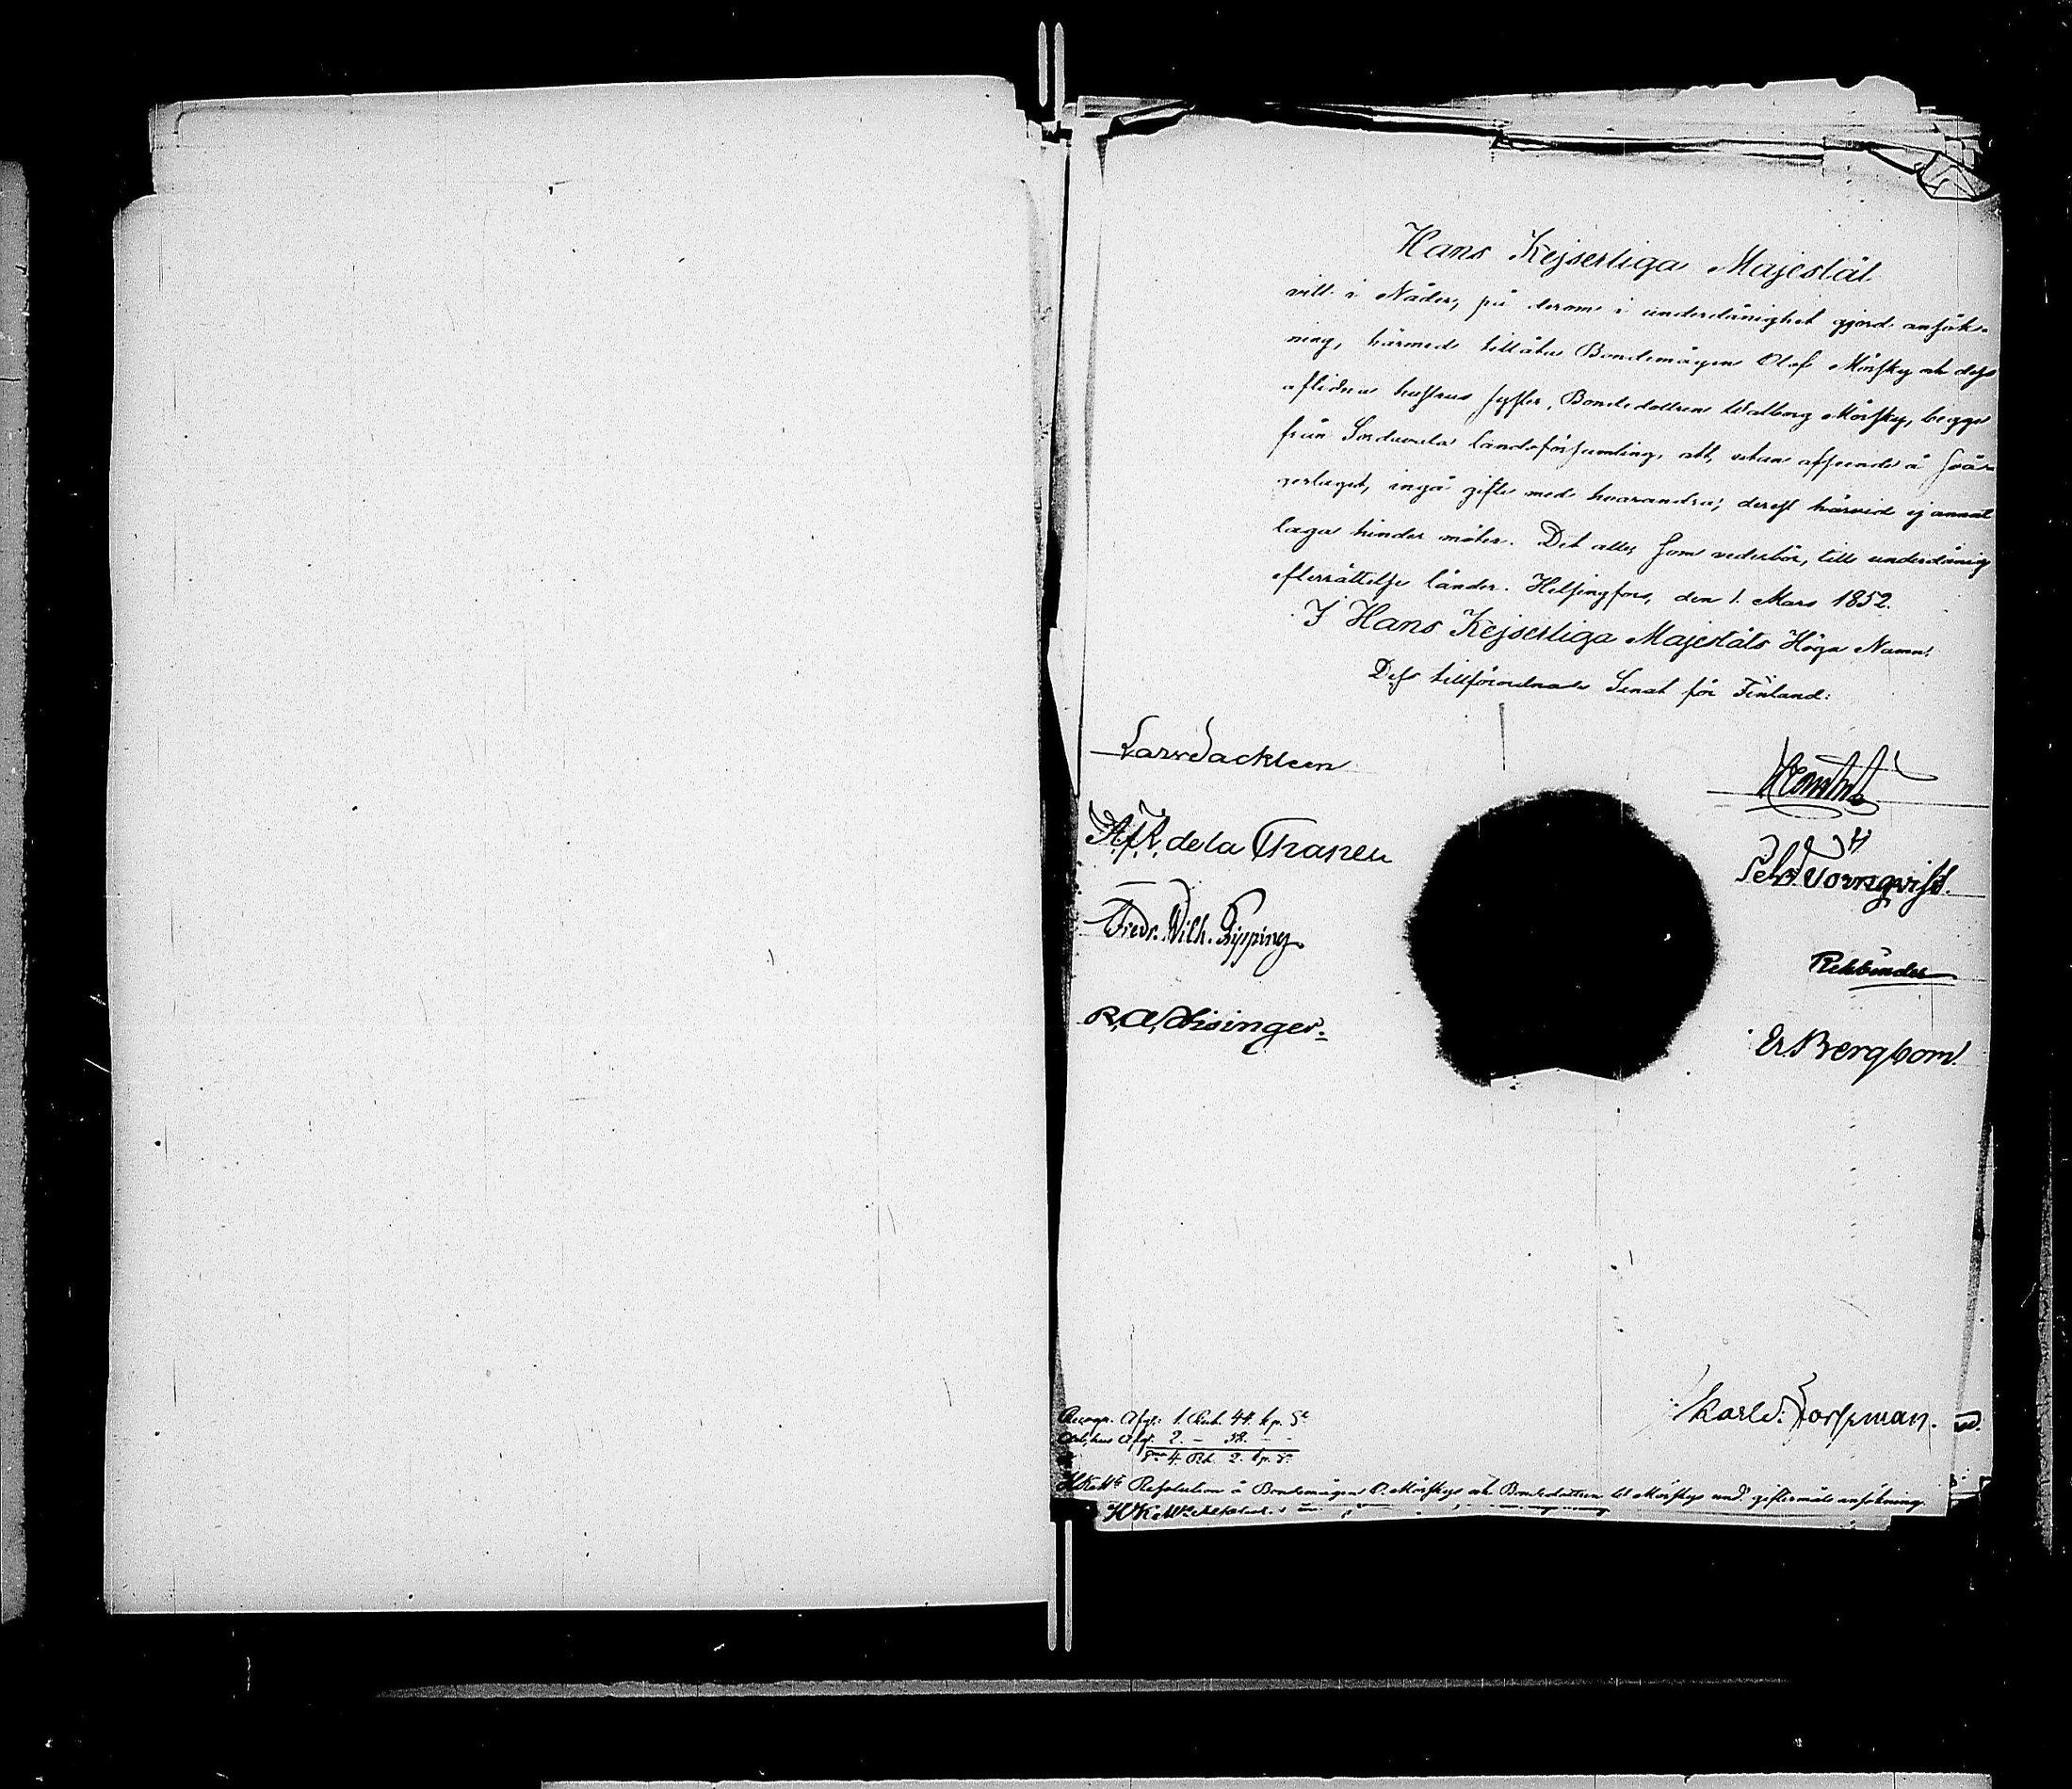 Hans Kejserliga Majestät
vill i Nåder, på derom i underdånighet gjord ansök-
ning, härmed tillåta Bondemågen Olof Mörsky och dess
aflidna hustrus syster, Bondedottren Walborg Mörsky, begge
från Sordavala landsförsamling, att, utan afseende å svå-
gerlaget, ingå gifte med hvarandra; derest härvid ej annat
laga hinder möter. Det alle, som vederbör, till underdånig
efterrättelse länder. Helsingfors, den 1. Mars 1852.
I Hans Kejserliga Majestäts Höga Namn:
Dess tillförordnade Senat för Finland:
Lars Sackleen
A. f. R. de la Chapelle
Petr. Törnqvist.
Fredr. Wilh. Pipping
Rehbinder
R. A. Hisinger.
Er. Bergbom
Karl Forssman.
Recogn. Afgt: 1. Rub. 44. kp. Sr
Afgt. 2. — 58. —
Sma 4. Rbl. 2. kp. Sr
HKeMts Resolution å Bondemågen O. Mörskys och Bondedottren W. Mörskys und. giftermåls ansökning.